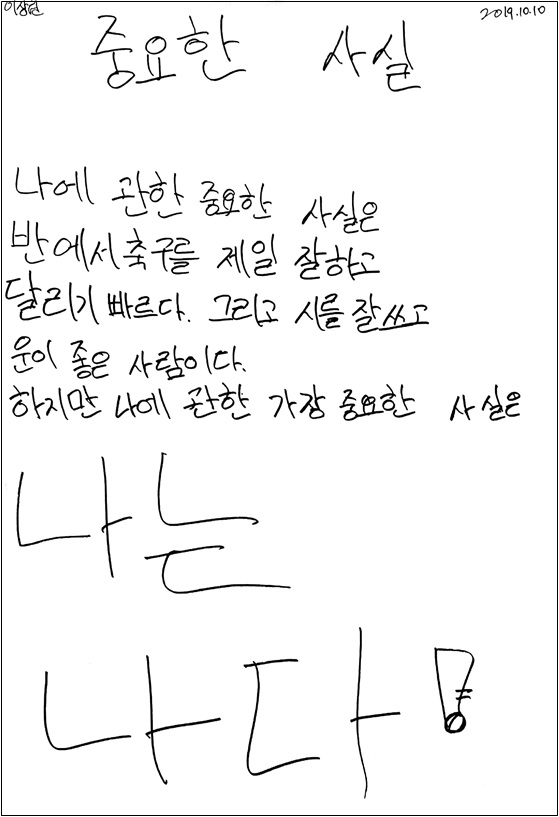 2019.10.10
중요한 사실
나에 관한 중요한 사실은
반에서 축구를 제일 잘하고
달리기 빠르다. 그리고 시를 잘쓰고
운이 좋은 사람이다.
하지만 나에 관한 가장 중요한 사실은
나는
나다!